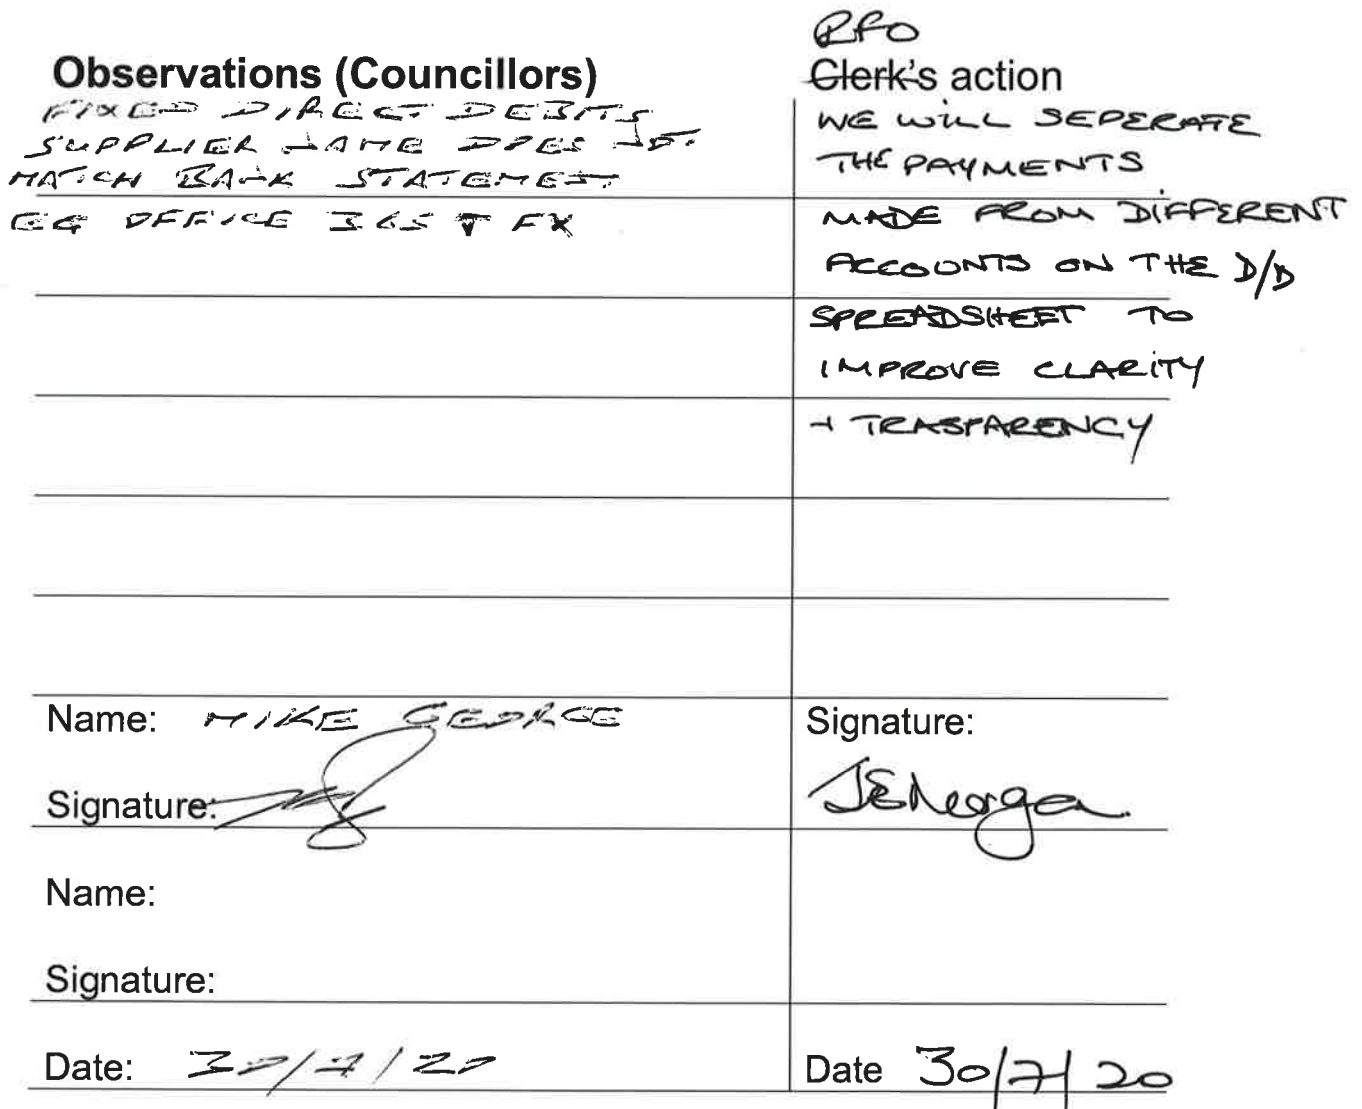 Observations (Councillors)
FIXED DIRECT DEBITS
SUPPLIER NAME DOES NOT
MATCH BANK STATEMENT
EG OFFICE 365 FX
Name: MIKE GEORGE
Signature:
Name:
Signature:
Date: 30/7/20
RFO
Clerk's action
WE WILL SEPERATE
THE PAYMENTS
MADE FROM DIFFERENT
ACCOUNTS ON THE D/D
SPREADSHEET TO
IMPROVE CLARITY
+ TRASPARENCY
Signature:
Date 30/7/20